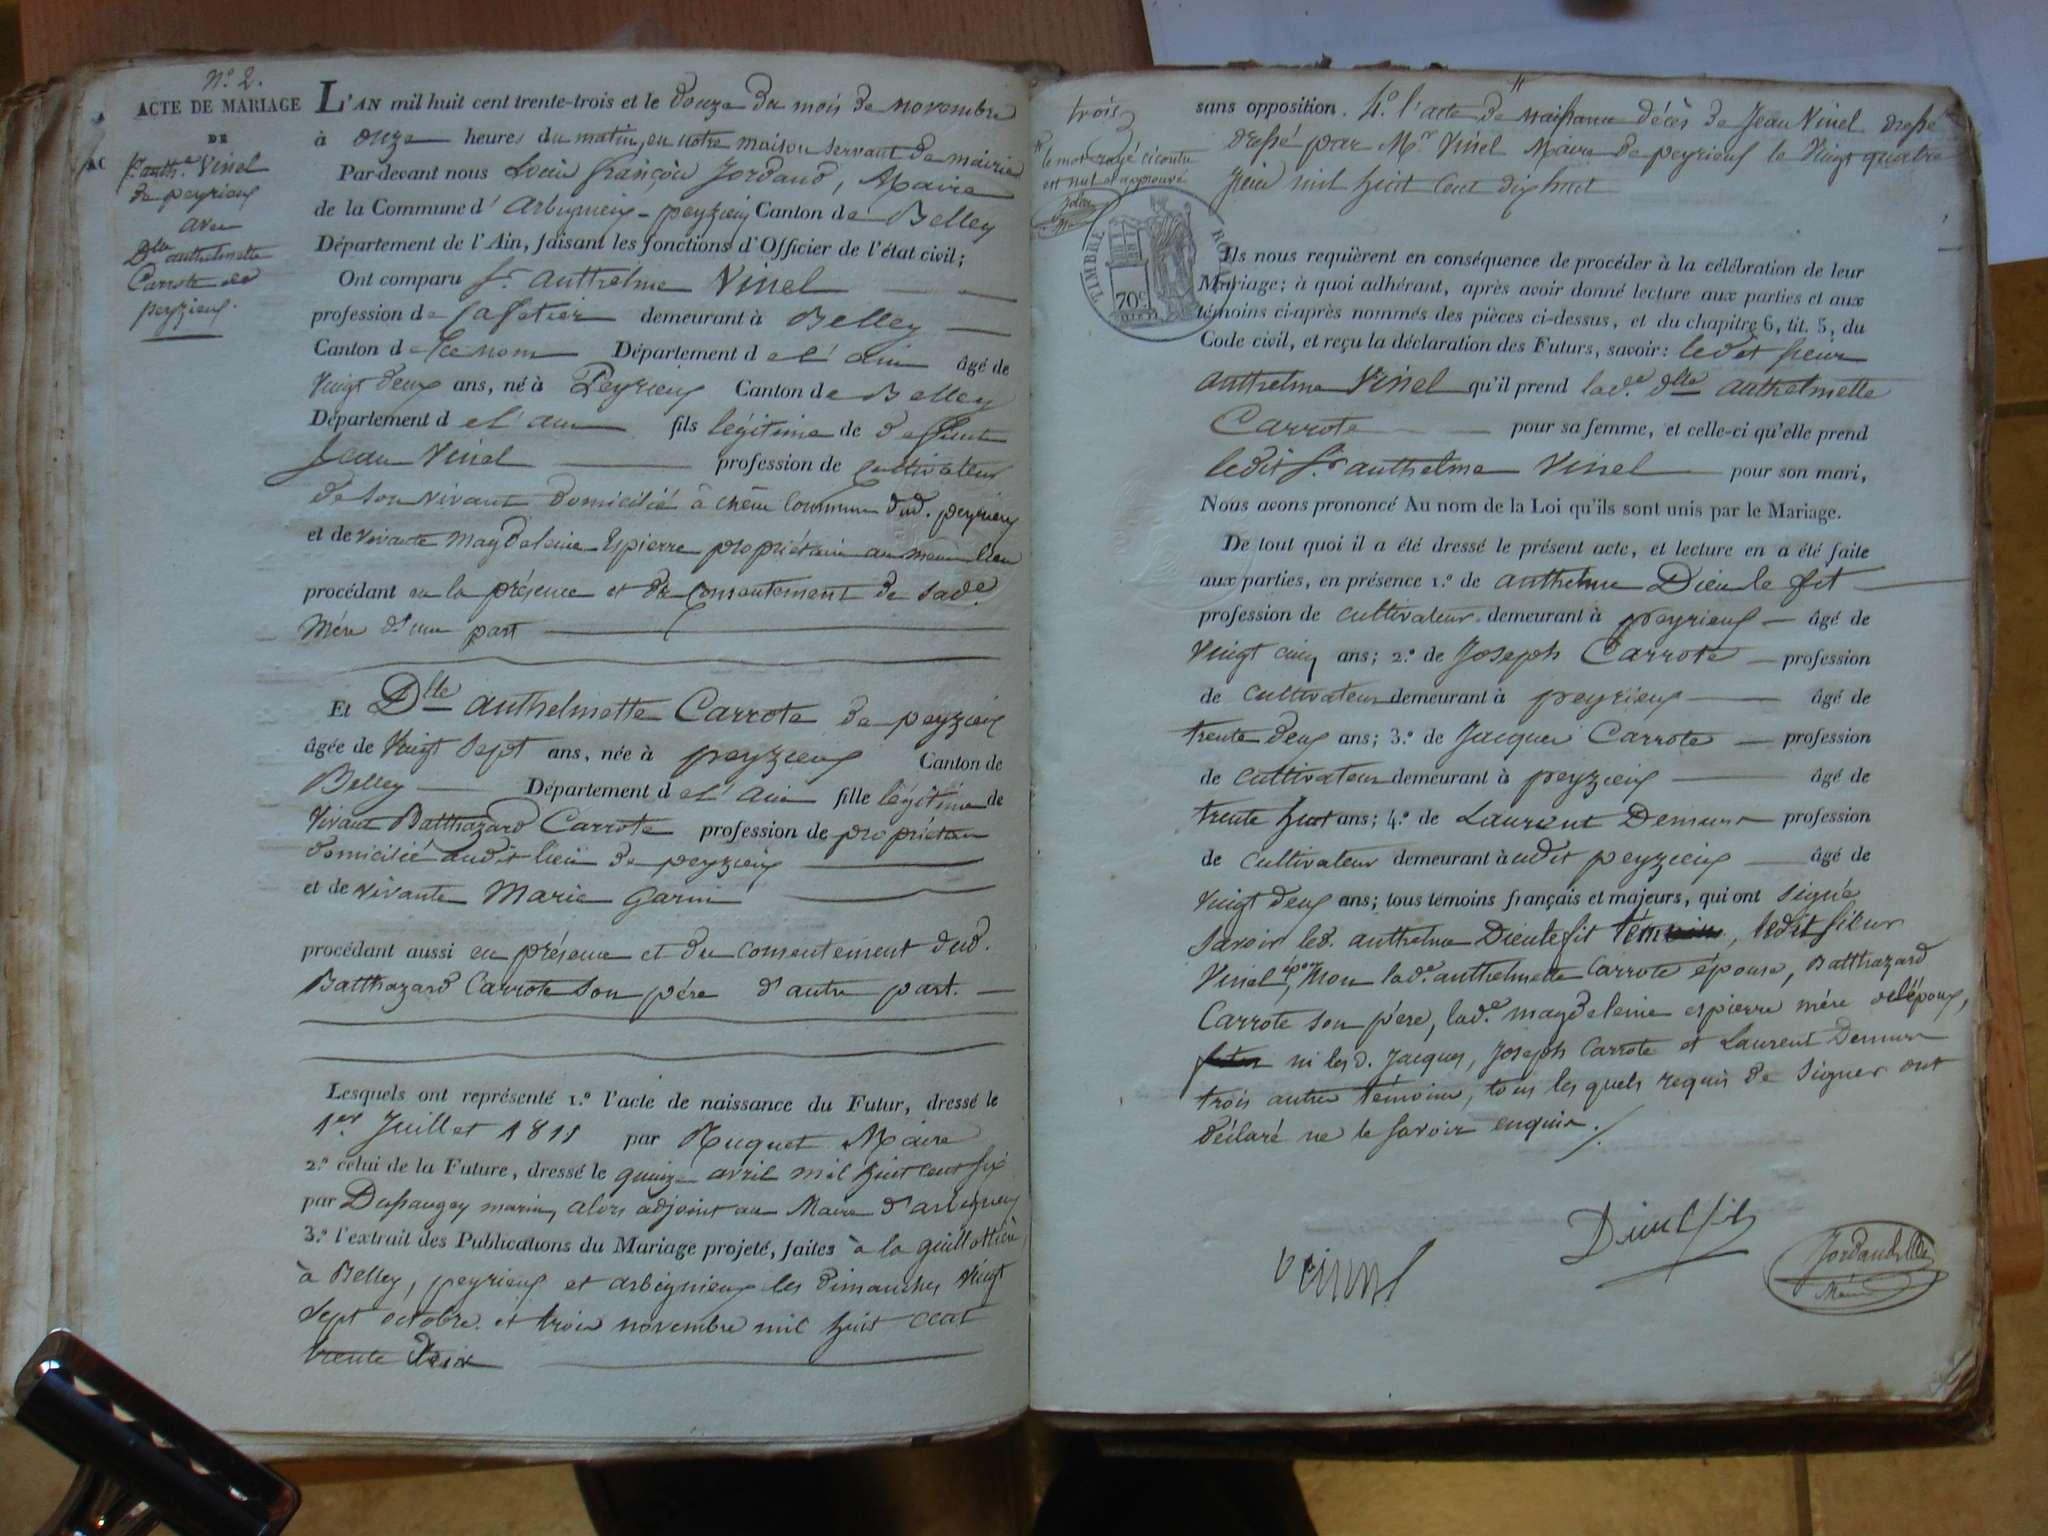 N.º 2.
ACTE DE MARIAGE
DE
S.r anth.e Vinel
de peyrieux
avec
D.lle anthelmette
Carrote de
peyzieux.
L'AN mil huit cent trente-trois et le douze du mois de novembre
à onze heures du matin, en notre maison servant de mairie
Par-devant nous Louis françois Jordand, Maire
de la Commune d'arbignieux-peyzieux Canton de Belley
Département de l'Ain, faisant les fonctions d'Officier de l'état civil;
Ont comparu S.r anthelme Vinel
profession de Cafetier demeurant à Belley
Canton de Ce nom Département de l'ain âgé de
Vingt deux ans, né à Peyrieux Canton de Belley
Département de l'ain fils légitime de defunt
Jean Vinel profession de cultivateur
de son vivant domicilié à chêin Commune dud. peyrieux
et de vivante Magdeleine Espierre propriétaire au meme lieu
procédant en la présence et du Consentement de sad.e
Mére d'une part
Et D.lle anthelmette Carrote de peyzieux
âgée de Vingt sept ans, née à peyzieux Canton de
Belley Département de l'ain fille légitime de
Vivant Balthazard Carrote profession de propriétaire
domicilié audit lieu de peyzieux
et de vivante Marie Garin
procédant aussi en présence et du consentement dud.
Balthazard Carrote son pére d'autre part.
Lesquels ont représenté 1.º l'acte de naissance du Futur, dressé le
1er Juillet 1811 par Huguet Maire
2.º celui de la Future, dressé le quinze avril mil huit cent six
par Dupaugey marin, alors adjoint au Maire d'arbignieux
3.º l'extrait des Publications du Mariage projeté, faites à la guillottière,
à Belley, peyrieux et arbignieux les dimanches Vingt
Sept octobre et trois novembre mil huit cent
trente trois
trois
le mot rayé ci contre
est nul et approuvé
sans opposition. 4.º l'acte de naissance décès de Jean Vinel dressé
dressé par M.r Vinel Maire de peyrieux le Vingt quatre
Juin mil huit cent dix huit
TIMBRE ROYAL
70c
Ils nous requièrent en conséquence de procéder à la célébration de leur
Mariage; à quoi adhérant, après avoir donné lecture aux parties et aux
témoins ci-après nommés des pièces ci-dessus, et du chapitre 6, tit. 5, du
Code civil, et reçu la déclaration des Futurs, savoir: ledit sieur
anthelme Vinel qu'il prend lad.e d.lle anthelmette
Carrote pour sa femme, et celle-ci qu'elle prend
ledit S.r anthelme Vinel pour son mari,
Nous avons prononcé Au nom de la Loi qu'ils sont unis par le Mariage.
De tout quoi il a été dressé le présent acte, et lecture en a été faite
aux parties, en présence 1.º de anthelme Dieu le fit
profession de cultivateur demeurant à peyrieux âgé de
Vingt cinq ans; 2.º de Joseph Carrote profession
de cultivateur demeurant à peyrieux âgé de
trente deux ans; 3.º de Jacques Carrote profession
de cultivateur demeurant à peyzieux âgé de
trente huit ans; 4.º de Laurent Demurs profession
de cultivateur demeurant audit peyzieux âgé de
Vingt deux ans; tous témoins français et majeurs, qui ont signé
Savoir led. anthelme Dieulefit témoin, ledit sieur
Vinel époux, Non lad.e anthelmette Carrote épouse, Balthazard
Carrote son père, lad.e magdeleine espierre mére de l'époux,
ni les d. Jacques, Joseph Carrote et Laurent Demurs
trois autres témoins, tous les quels requis de signer ont
déclaré ne le savoir enquis.
Dieulefit
Jordand
Maire